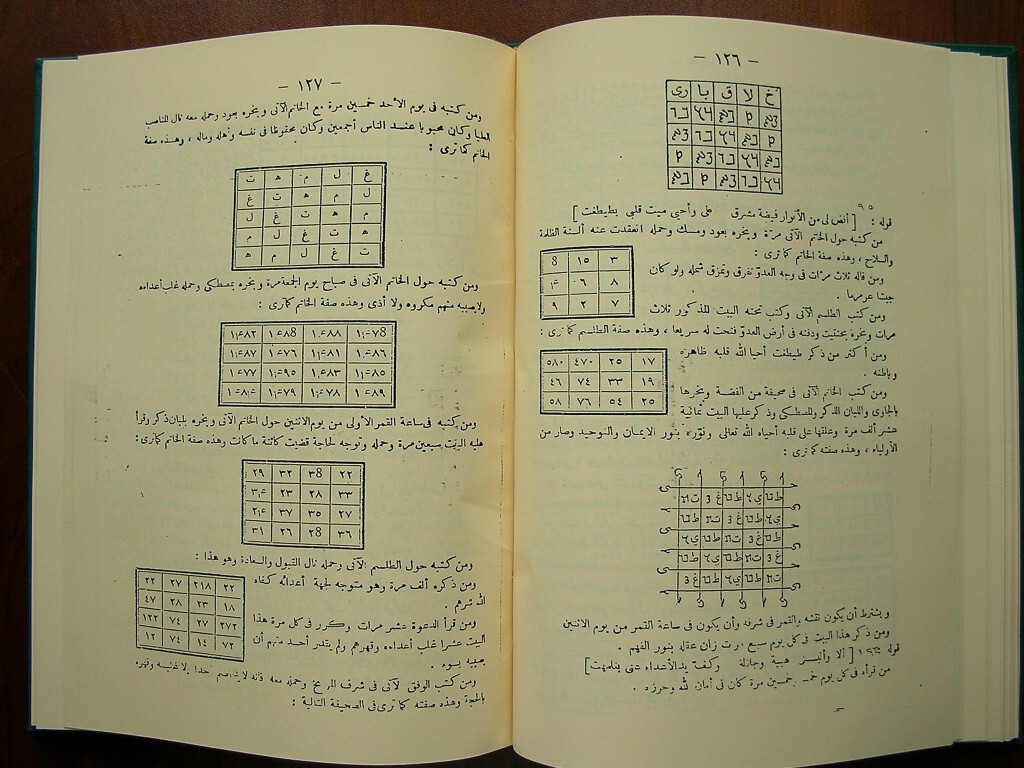 — ١٢٦ —
خ لا ق با رى
قوله : [ أفض لى من الأنوار فيضة مشرق على وأحيى ميت قلبى بطيطغت ]
من كتبه حول الخاتم الآتى مرة وبخره بعود ومسك وحمله انعقدت عنه ألسنة الظلمة
والسلاح ، وهذه صفة الخاتم كما ترى :
ومن قاله ثلاث مرات فى وجه العدو تفرق وتمزق شمله ولو كان
جيشا عرمرما .
8 ١٥ ٣
٠٦ ٨
٩ ٢ ٧
ومن كتب الطلسم الآتى وكتب تحته البيت المذكور ثلاث
مرات وبخره بحلتيت ودفنه فى أرض العدو فتحت له سريعا ، وهذه صفة الطلسم كما ترى :
ومن أكثر من ذكر طيطغت أحيا الله قلبه ظاهره
وباطنه .
٥٨٠ ٤٧٠ ٢٥ ١٧
٤٦ ٧٤ ٣٣ ١٩
٥٨ ٧٦ ٥٤ ٢٥
ومن كتب الخاتم الآتى فى صحيفة من الفضة وبخرها
بالجاوى واللبان الذكر والمصطكى وذكر عليها البيت ثمانية
عشر ألف مرة وعلقها على قلبه أحياه الله تعالى ونوره بنور الايمان والتوحيد وصار من
الأولياء ، وهذه صفته كما ترى :
ويشترط أن يكون نقشه والقمر فى شرفه وأن يكون فى ساعة القمر من يوم الاثنين
ومن ذكر هذا البيت فى كل يوم سبع مرات زان عقله بنور الفهم .
قوله [ ألا وألبس هيبة وجلالة وكف يد الأعداء عنى بغلمهت ]
من قرأه فى كل يوم خمسين مرة كان فى أمان الله وحرزه .
— ١٢٧ —
ومن كتبه فى يوم الأحد خمسين مرة مع الخاتم الآتى وبخره بعود وحمله معه نال المناصب
العليا وكان محبوبا عند الناس أجمعين وكان محفوظا فى نفسه وأهله وماله ، وهذه صفة
الخاتم كما ترى :
غ ل م ه ت
ل م ه ت غ
م ه ت غ ل
ه ت غ ل م
ت غ ل م ه
ومن كتبه حول الخاتم الآتى فى صباح يوم الجمعة مرة وبخره بمصطكى وحمله غلب أعداءه
ولا يصيبه منهم مكروه ولا أذى وهذه صفة الخاتم كما ترى :
ومن كتبه فى ساعة القمر الأولى من يوم الاثنين حول الخاتم الآتى وبخره بلبان ذكر وقرأ
عليه البيت سبعين مرة وحمله وتوجه لحاجة قضيت كائنة ما كانت وهذه صفة الخاتم كما ترى :
٢٩ ٣٢ ٣8 ٢٢
٢٣ ٢٨ ٣٣
٣٧ ٣٥ ٢٧
٣١ ٢٦ ٢8 ٣٦
ومن كتبه حول الطلسم الآتى وحمله نال القبول والسعادة وهو هذا :
ومن ذكره ألف مرة وهو متوجه لجهة أعدائه كفاه
الله شرهم .
ومن قرأ الدعوة عشر مرات وكرر فى كل مرة هذا
البيت عشرا غلب أعداءه وقهرهم ولم يقدر أحد منهم أن
يصيبه بسوء .
٢٢ ٢٧ ٢١٨ ٢٢
٤٧ ٢٨ ٢٣ ١٨
١٢٢ ٧٤ ٢٧ ٢٧٢
١٢ ٧٤ ١٤ ٧٢
ومن كتب الوفق الآتى فى شرف المريخ وحمله معه فانه لا يخاصم أحدا إلا غلبه وقهره
بالحجة وهذه صفته كما ترى فى الصحيفة التالية :